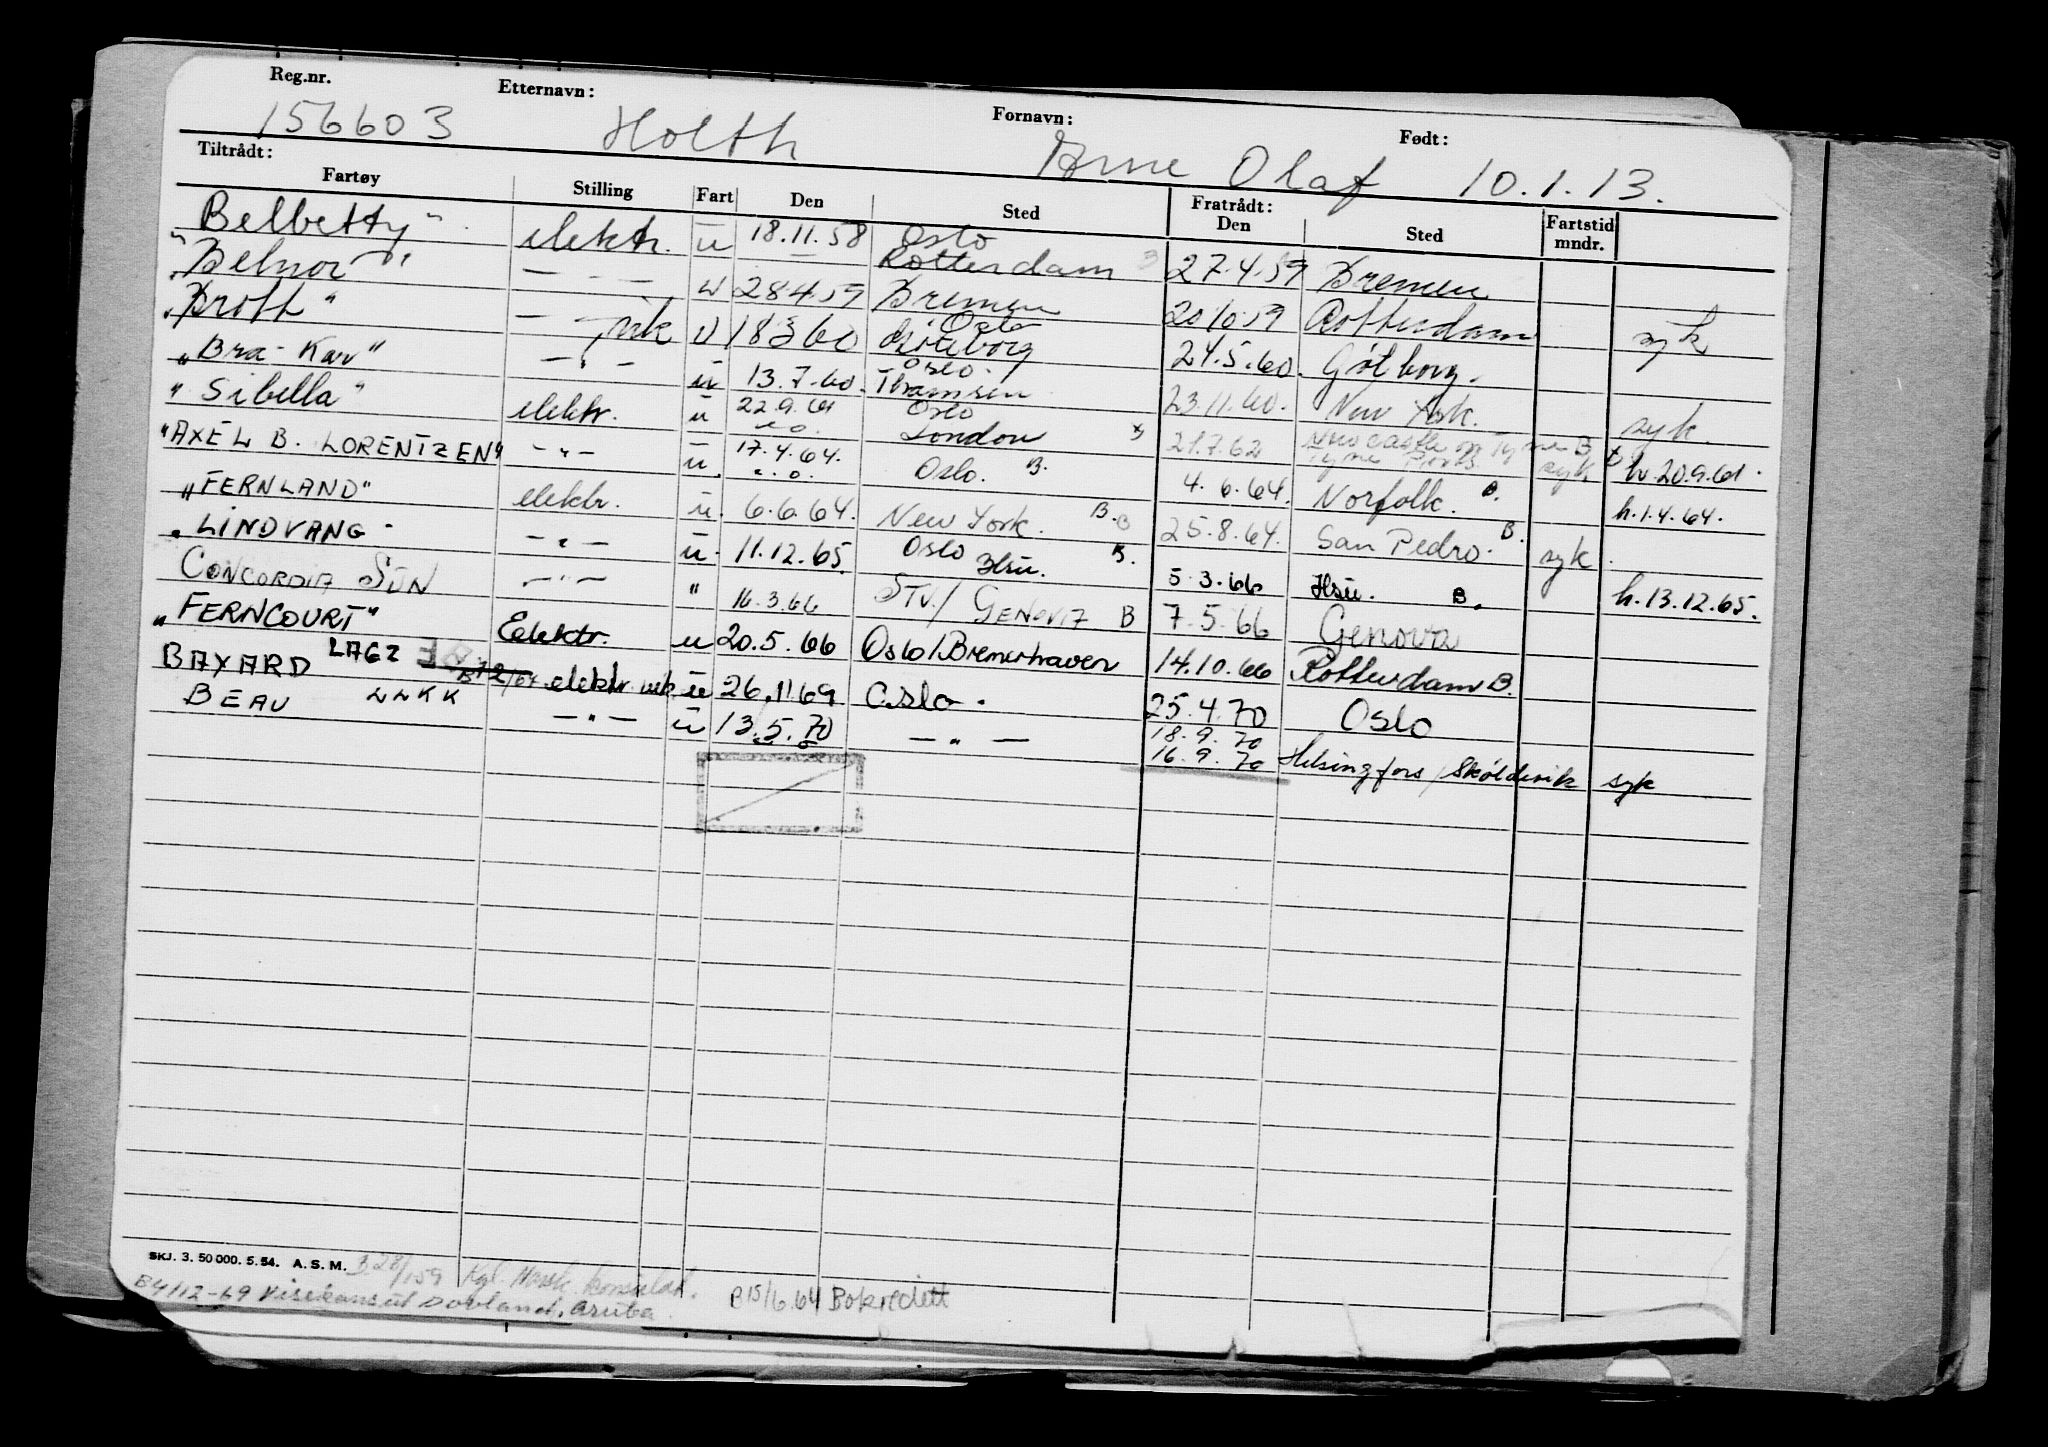 Reg.nr. Etternavn: Fornavn: Født:
156603 Holth Arne Olaf 10.1.13.
Tiltrådt: Fratrådt:
Fartøy Stilling Fart Den Sted Den Sted Fartstid mndr.
"Belbetty" elektr. u 18.11.58 Oslo Rotterdam 27.4.59 Bremen
"Belnor" — " — u 28.4.59 Bremen 20.10.59 Rotterdam syk
"Brott" — " — u 18.3.60 Oslo Göteborg 24.5.60. Götborg.
"Bra-Kar" — " — u 13.7.60. Oslo. Thamsen 23.11.60. New York. syk.
"Sibella" elektr. u 22.9.61 Oslo London 21.7.62 Newcastle on Tyne B syk h. 20.9.61.
"AXEL B. LORENTZEN" — " — u. 17.4.64. Oslo. B. 4.6.64. Norfolk. B. h. 1.4.64.
"FERNLAND" elektr. u. 6.6.64. New York. B. B 25.8.64. San Pedro. B. syk
"LINDVANG" — " — u. 11.12.65. Oslo B. 5.3.66 B. h. 13.12.65.
CONCORDIA SUN — " — " 16.3.66 STV./ GENOVA B 7.5.66 Genova
"FERNCOURT" Elektr. u 20.5.66 Oslo/Bremerhaven 14.10.66 Rotterdam B.
BAYARD LAGZ elektr. u 26.11.69 Oslo. 25.4.70 Oslo
BEAU LNKK — " — u 13.5.70 — " — 18.9.70
16.9.70 Helsingfors/Sköldvik syk
SKJ. 3. 50 000. 5. 54. A. S. M. B 28/159 Kgl. Norsk konsulat.
B4/12-69 Visekonsul Dovland, Aruba. e 15/6.64 Bokredett